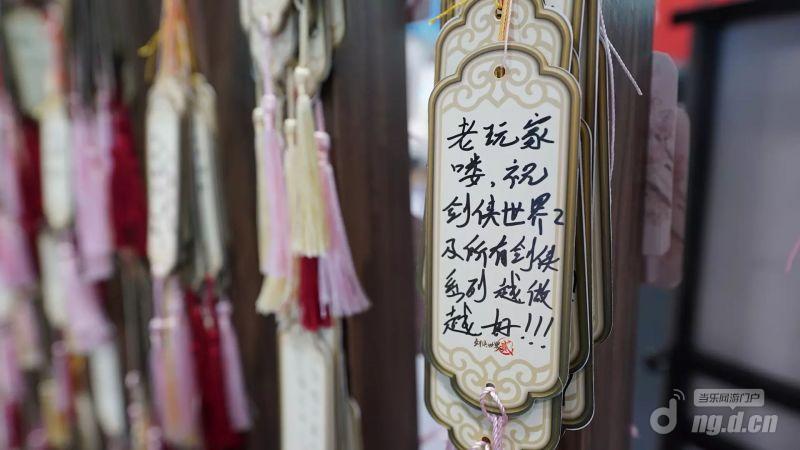 老玩家
喽,祝
剑侠世界2
及所有剑侠
系列越做
越好!!!
剑侠世界贰
当乐网游门户
ng.d.cn